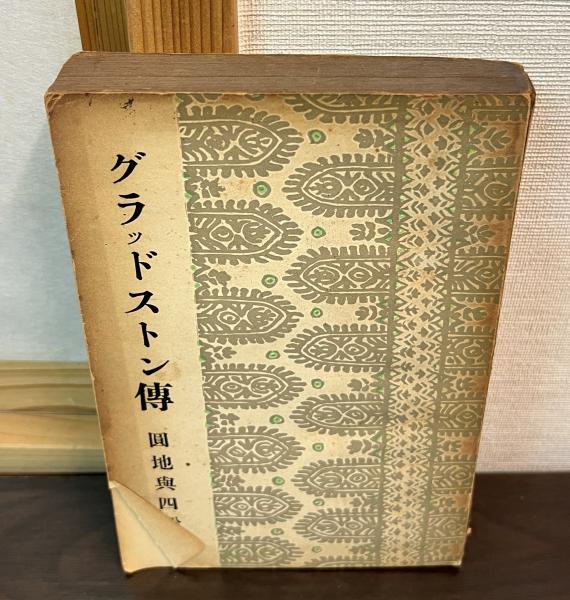 グラッドストン傳
圓地與四